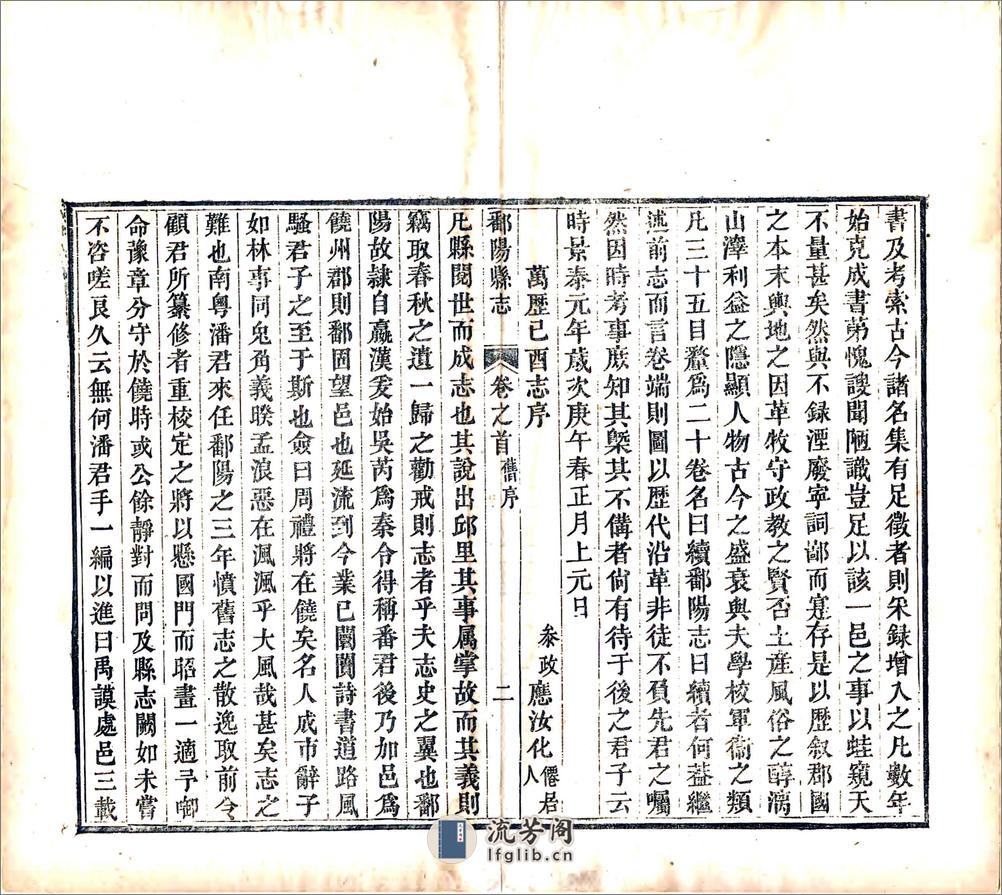 書及考索古今諸名集有足徵者則采録增入之凡數年
始克成書苐愧謏聞陋識豈足以該一邑之事以蛙窺天
不量甚矣然與不録湮廢寧詞鄙而寔存是以歴叙郡國
之本末輿地之因革牧守政教之賢否土産風俗之醇漓
山澤利益之隱顯人物古今之盛衰與夫學校軍衞之類
凡三十五目釐爲二十卷名曰續鄱陽志曰續者何葢繼
述前志而言卷端則圖以歴代沿革非徒不負先君之囑
然因時考事庶知其槩其不備者尙有待于後之君子云
時景泰元年歲次庚午春正月上元日
萬歴己酉志序 叅政應汝化僊居人
鄱陽縣志 卷之首 舊序 二
凡縣閱世而成志也其說出邱里其事属掌故而其義則
竊取春秋之遺一歸之勸戒則志者乎夫志史之翼也鄱
陽故隷自嬴漢爰始吳芮爲秦令得稱番君後乃加邑爲
饒州郡則鄱固望邑也延流到今業已闤闠詩書道路風
騷君子之至于斯也僉曰周禮將在饒矣名人成市辭子
如林事同兎角義睽孟浪惡在渢渢乎大風哉甚矣志之
難也南粤潘君來任鄱陽之三年憤舊志之散逸取前令
顧君所纂修者重校定之將以懸國門而昭畫一適予啣
命豫章分守於饒時或公餘靜對而問及縣志闕如未嘗
不咨嗟良久云無何潘君手一編以進曰禹謨處邑三載
流芳阁
lfglib.cn